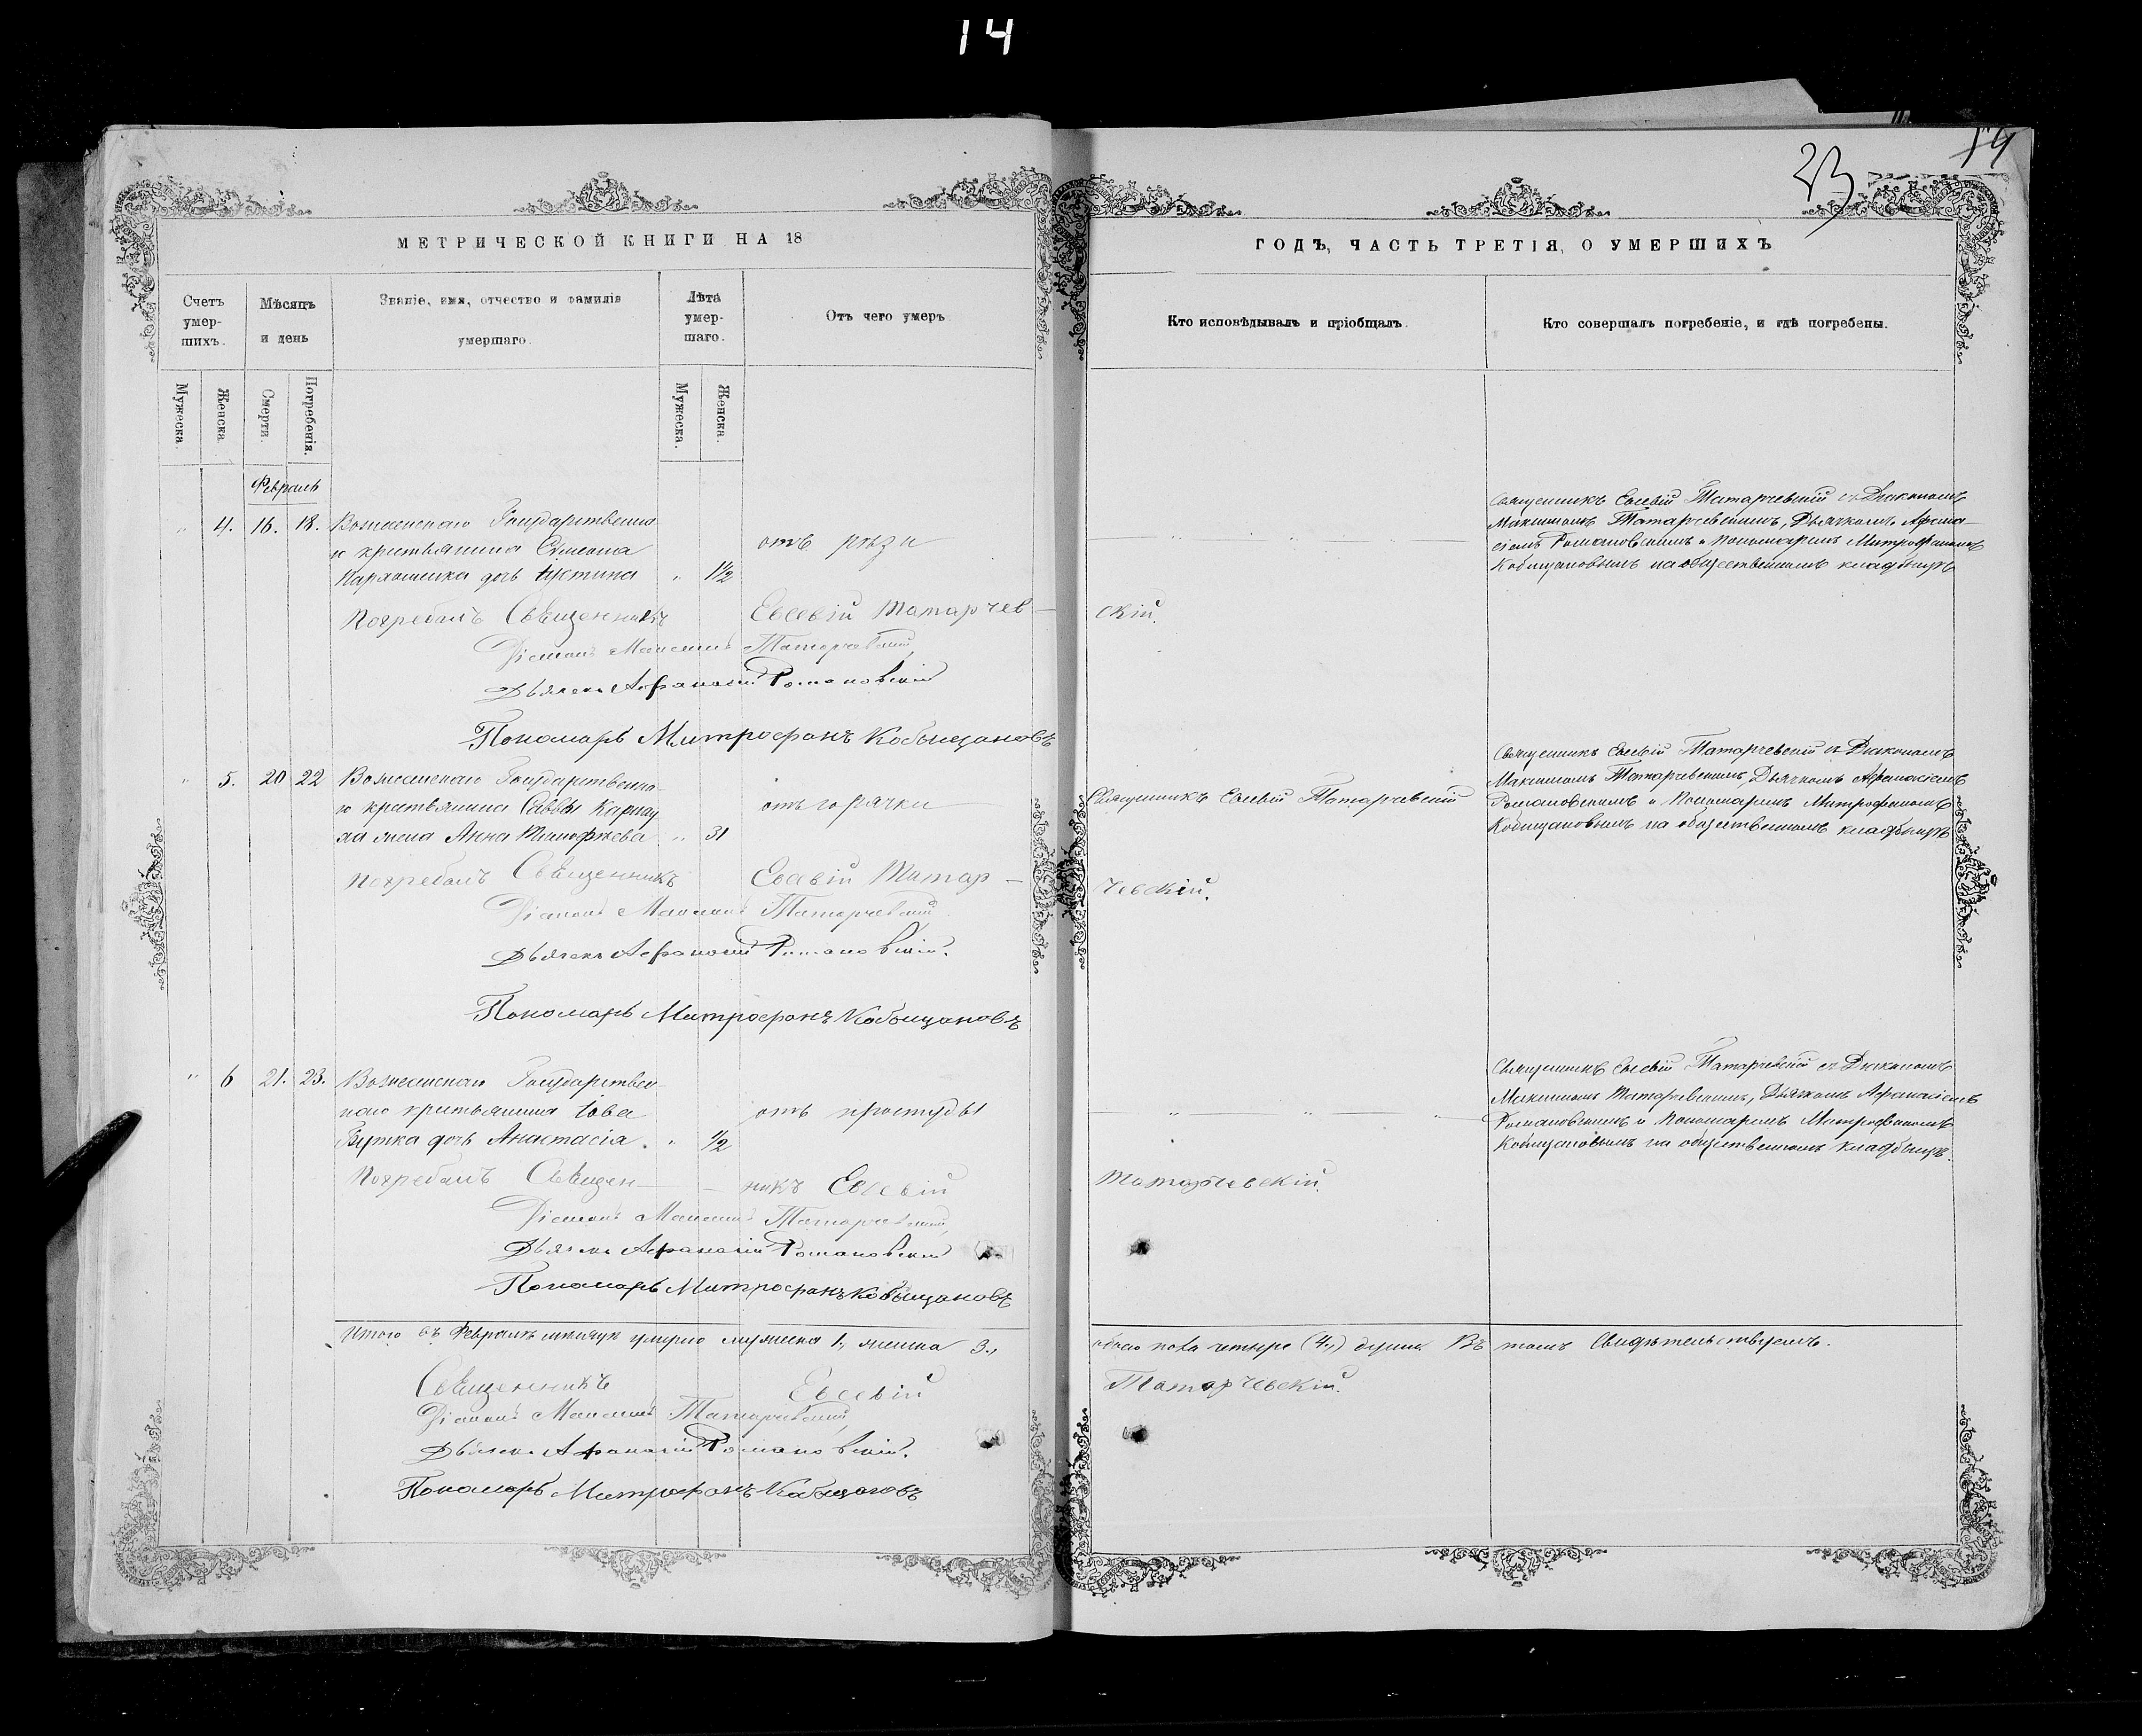 14
14
23
МЕТРИЧЕСКОЙ КНИГИ НА 18
ГОДЪ, ЧАСТЬ ТРЕТІЯ, О УМЕРШИХЪ
Счетъ умер-шихъ.
Мѣсяцъ и день
Званіе, имя, отчество и фамилія умершаго.
Лѣта умер-шаго.
Отъ чего умеръ
Кто исповѣдывалъ и пріобщалъ.
Кто совершалъ погребеніе, и гдѣ погребены.
Мужеска.
Женска.
Смерти.
Погребенія.
Мужеска.
Женска.
Февраль
" 4. 16. 18. Государственна
го крестьянина Симеона отъ
дочь Іустина " 1½
Священникъ Евсевій Татарчевскій съ Діакономъ
Максимомъ Татарчевскимъ, Дьячкомъ Афана-
сіемъ Романовскимъ и Пономаремъ Митрофаномъ
Кобыщановымъ на общественномъ кладбищѣ
Погребалъ Священникъ Евсевій Татарчев-
скій.
Діаконъ Максимъ Татарчевскій,
Дьячекъ Афанасій Романовскій
Пономарь Митрофанъ Кобыщановъ
" 5. 20 22 Государственна-
го крестьянина Саввы отъ горячки
жена Анна Тимофѣева " 31
Священникъ Евсевій Татарчевскій
Священникъ Евсевій Татарчевскій съ Діакономъ
Максимомъ Татарчевскимъ, Дьячкомъ Афанасіемъ
Романовскимъ и Пономаремъ Митрофаномъ
Кобыщановымъ на общественномъ кладбищѣ
Погребалъ Священникъ Евсевій Татар-
чевскій.
Діаконъ Максимъ Татарчевскій
Дьячекъ Афанасій Романовскій.
Пономарь Митрофанъ Кобыщановъ
" 6 21. 23. Государствен-
наго крестьянина Іова отъ простуды
дочь Анастасія. " ½
Священникъ Евсевій Татарчевскій съ Діакономъ
Максимомъ Татарчевскимъ, Дьячкомъ Афанасіемъ
Романовскимъ и Пономаремъ Митрофаномъ
Кобыщановымъ на общественномъ кладбищѣ.
Погребалъ Священ- никъ Евсевій
Татарчевскій.
Діаконъ Максимъ Татарчевскій,
Дьячекъ Афанасій Романовскій
Пономарь Митрофанъ Кобыщановъ
Итого въ Февралѣ мѣсяцѣ умерло мужеска 1, женска 3.,
обоего пола четыре (4.,) души. Въ томъ Свидѣтельствуемъ.
Священникъ Евсевій
Татарчевскій.
Діаконъ Максимъ Татарчевскій,
Дьячекъ Афанасій Романовскій.
Пономарь Митрофанъ Кобыщановъ